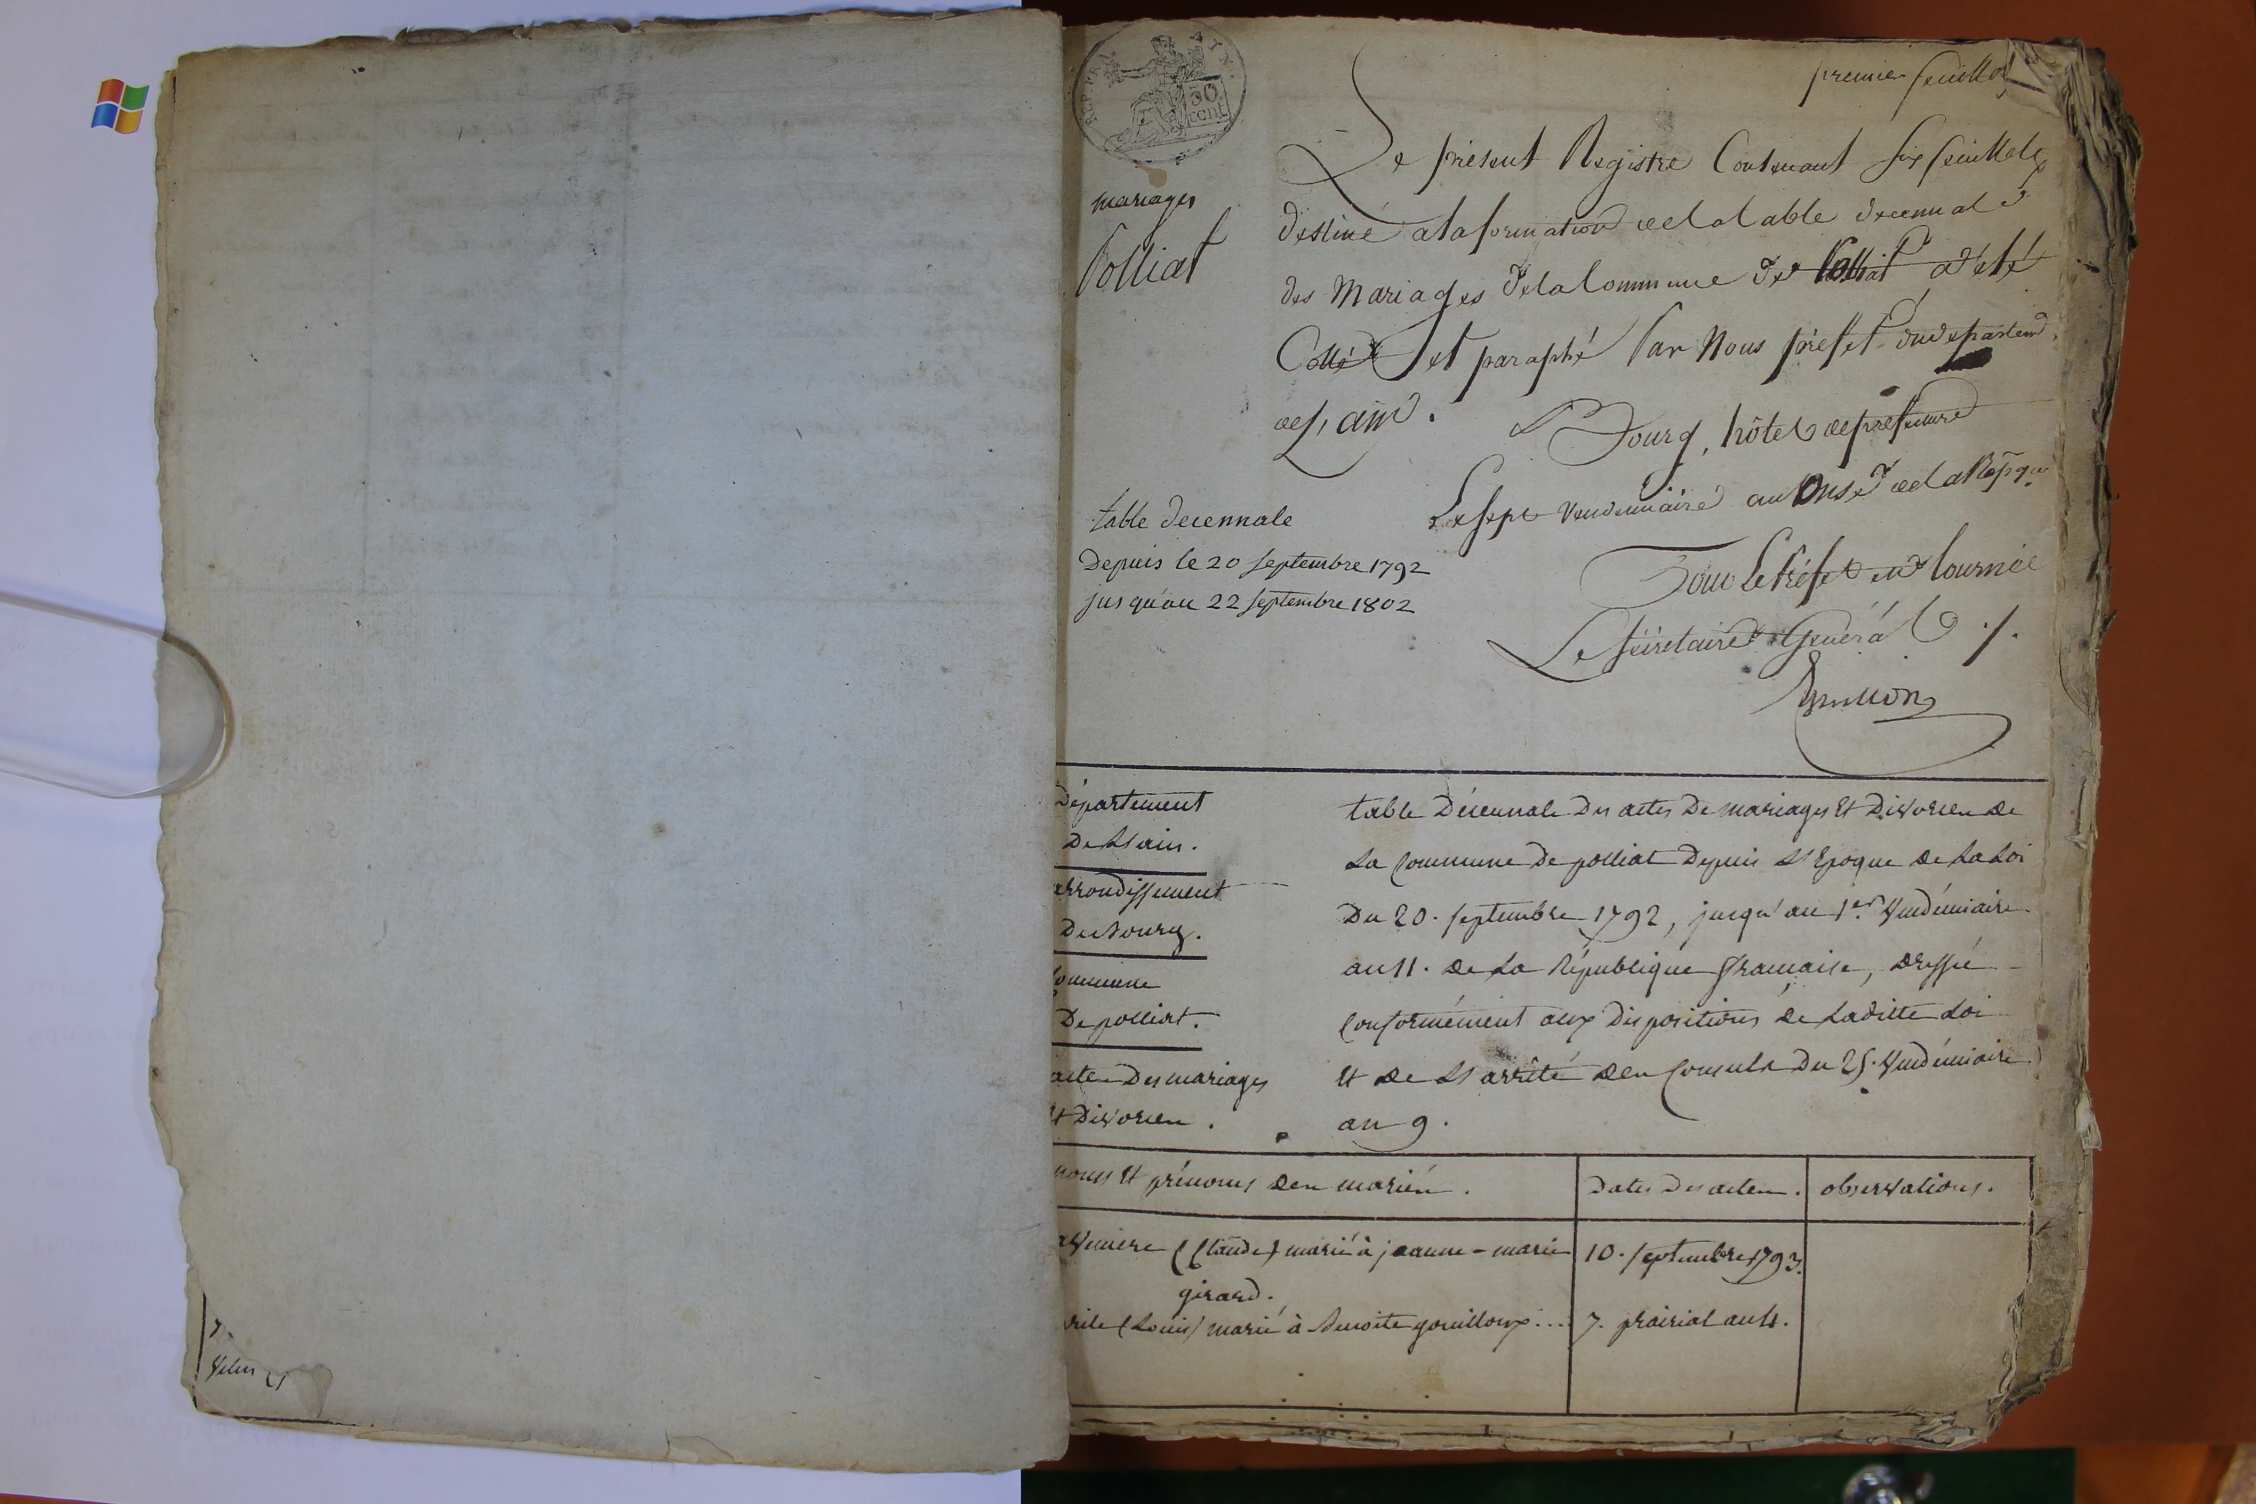 premier feuillet
REP. FRA. AIN.
50
cent
mariages
Polliat
Le présent Registre Contenant six feuillets
destiné a la formation de la table decennale
des Mariages de la Commune de Polliat a été
Cotté et paraphé Par Nous préfet du departemt
de l'ain.
Bourg, hôtel de prefecture
Le sept vendemiaire an Onze de la Répque
table decennale
Depuis le 20 septembre 1792
jusqu'au 22 septembre 1802
Pour Le Préfet en tournée
Le Secretaire Général
Département
De L'ain.
arrondissement
De Bourg.
Commune
De polliat.
actes Des mariages
Et Divorces.
table Décennale Des actes De mariages Et Divorces de
La Commune De polliat Depuis L'Epoque de La Loi
Du 20. septembre 1792, jusqu'au 1er Vendémiaire
an 11. de La République française, dressée
Conformément aux Dispositions de Laditte Loi
Et de L'arrêté des Consuls Du 25. Vendémiaire
an 9.
noms Et prénoms des mariés. Dates Des actes. observations.
(Claude) marié à jeanne-marie 10. septembre 1793.
girard.
(Louis) marié à Benoite gouilloux... 7. prairial an 4.
7.